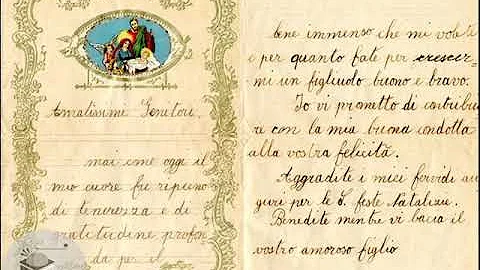 Amatissimi Genitori,
mai come oggi il
mio cuore fu ripieno
di tenerezza e di
gratitudine profon
da per il
bene immenso che mi volete
e per quanto fate per crescer-
mi un figliuolo buono e bravo.
Io vi prometto di contribui
re con la mia buona condotta
alla vostra felicità.
Aggradite i miei fervidi au
guri per le S. feste Natalizie.
Benedite mentre vi bacia il
vostro amoroso figlio